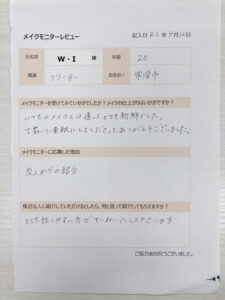 メイクモニターレビュー
記入日 R5年9月12日
お名前 W・I 様 年齢 20
職業 フリーター お住まい 常滑市
メイクモニターを受けてみていかがでしたか？メイクの仕上がりはいかがですか？
いつものメイクとは違ってとても新鮮でした。
丁寧に素敵にしてくださってありがとうございました。
メイクモニターに応募した理由
友人からの紹介
身近な人に紹介していただけるとしたら、何と言って紹介してもらえますか？
とても話しやすい方でていねいにしてくださいます
ご協力ありがとうございました。